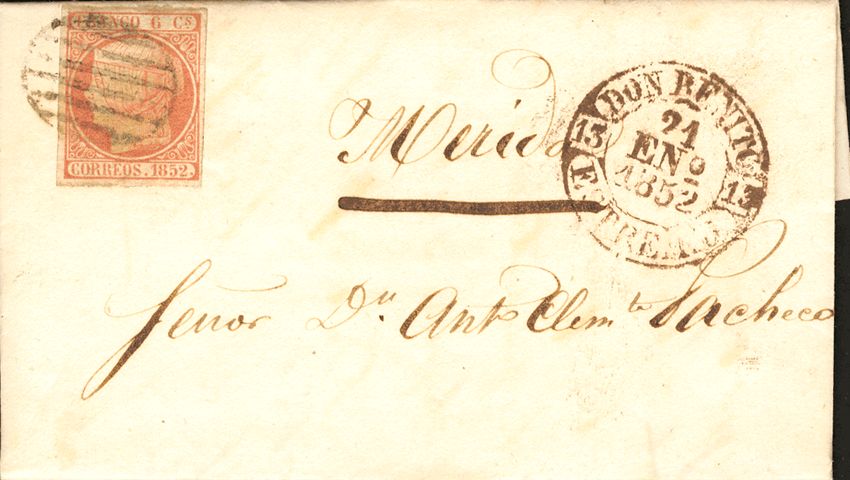 FRANCO 6 Cs
CORREOS. 1852.
Merida
DON BENITO
13
21
ENº
1852
13
ESTREMª
Señor Dn Antº Clemte Pacheco